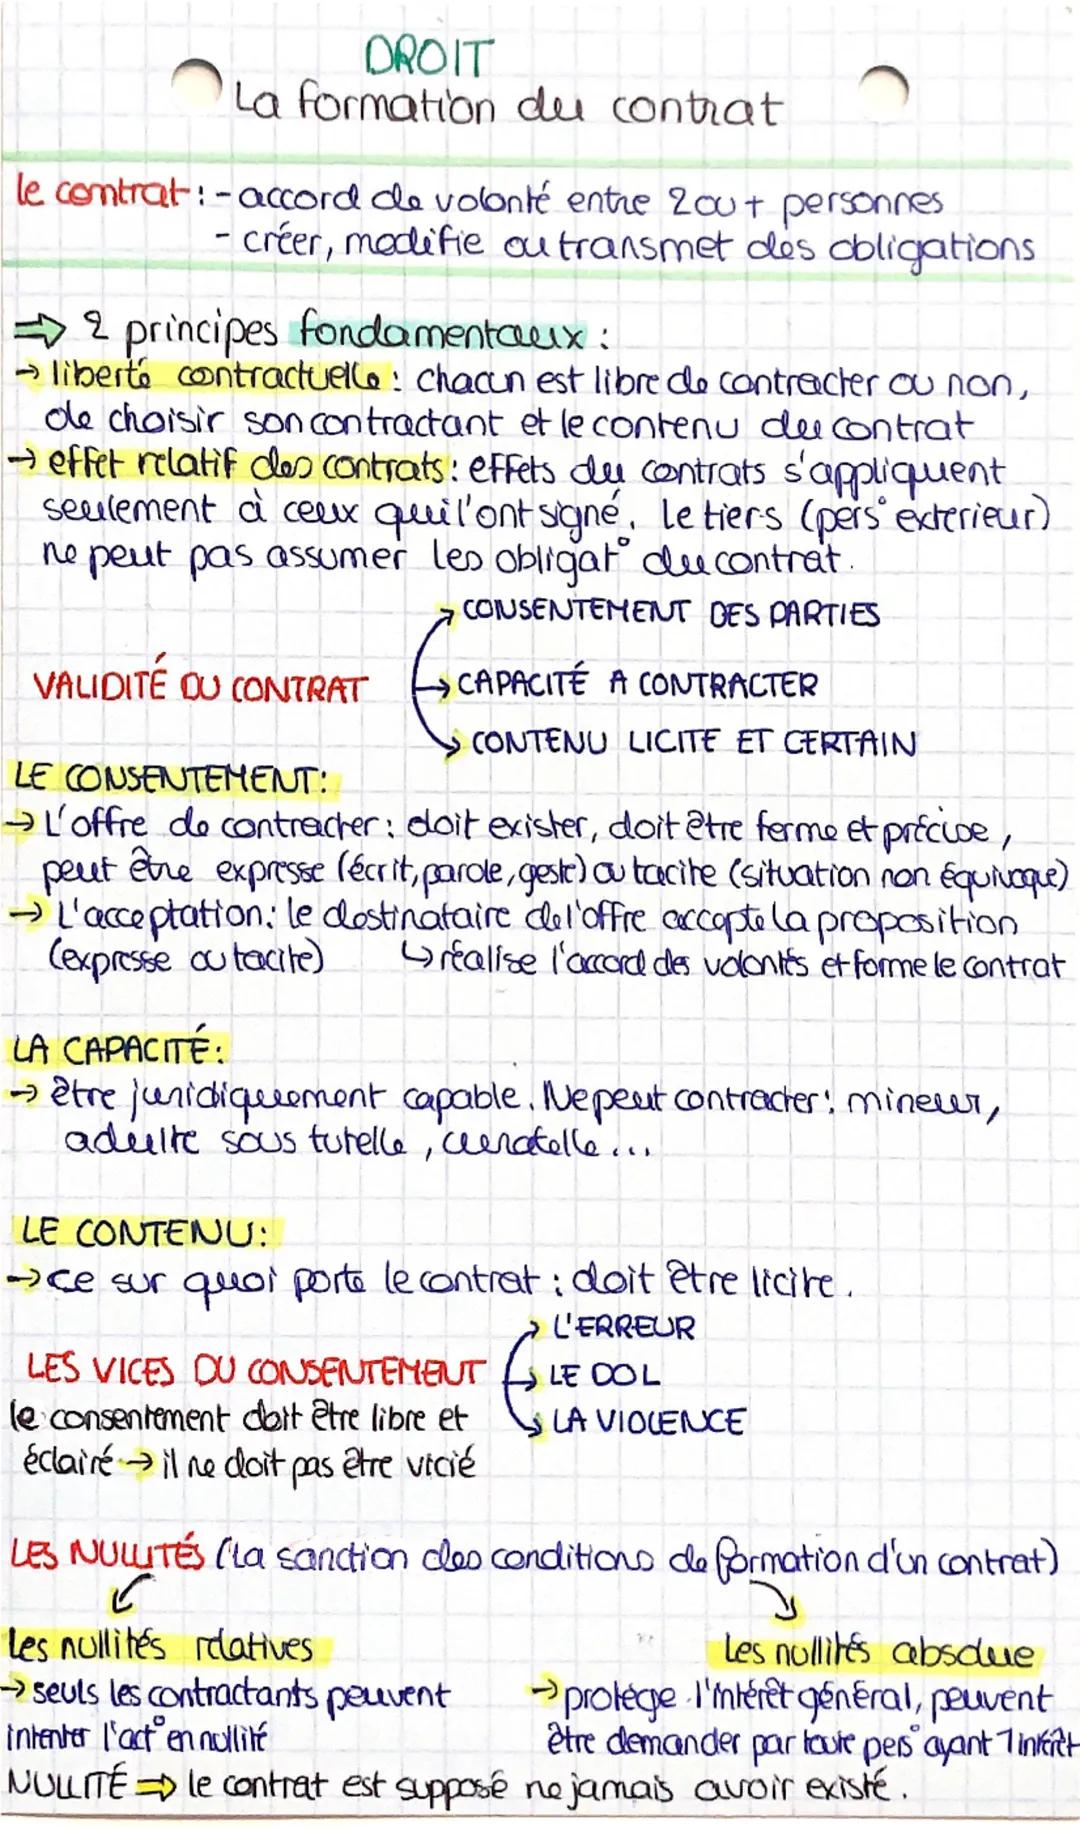 DROIT
La formation du contrat
le contrat : - accord de volonté entre 2 ou + personnes
- créer, modifie ou transmet des obligations
⇒ 2 principes fondamentaux :
→ liberté contractuelle : chacun est libre de contracter ou non,
de choisir son contractant et le contenu du contrat
→ effet relatif des contrats : effets du contrats s'appliquent
seulement à ceux qui l'ont signé. Le tiers (pers° exterieur)
ne peut pas assumer les obligat° du contrat.
→ CONSENTEMENT DES PARTIES
VALIDITÉ DU CONTRAT → CAPACITÉ A CONTRACTER
→ CONTENU LICITE ET CERTAIN
LE CONSENTEMENT :
→ L'offre de contracter : doit exister, doit être ferme et précise,
peut être expresse (écrit, parole, geste) ou tacite (situation non équivoque)
→ L'acceptation : le destinataire de l'offre accepte la proposition
(expresse ou tacite) ↳ réalise l'accord des volontés et forme le contrat
LA CAPACITÉ :
→ être juridiquement capable. Ne peut contracter : mineur,
adulte sous tutelle, curatelle ...
LE CONTENU :
→ ce sur quoi porte le contrat : doit être licite.
→ L'ERREUR
LES VICES DU CONSENTEMENT → LE DOL
le consentement doit être libre et → LA VIOLENCE
éclairé → il ne doit pas être vicié
LES NULLITÉS (La sanction des conditions de formation d'un contrat)
Les nullités relatives Les nullités absolue
→ seuls les contractants peuvent → protège l'intérêt général, peuvent
intenter l'act° en nullité être demander par toute pers° ayant 1 intérêt
NULLITÉ ⇒ le contrat est supposé ne jamais avoir existé.